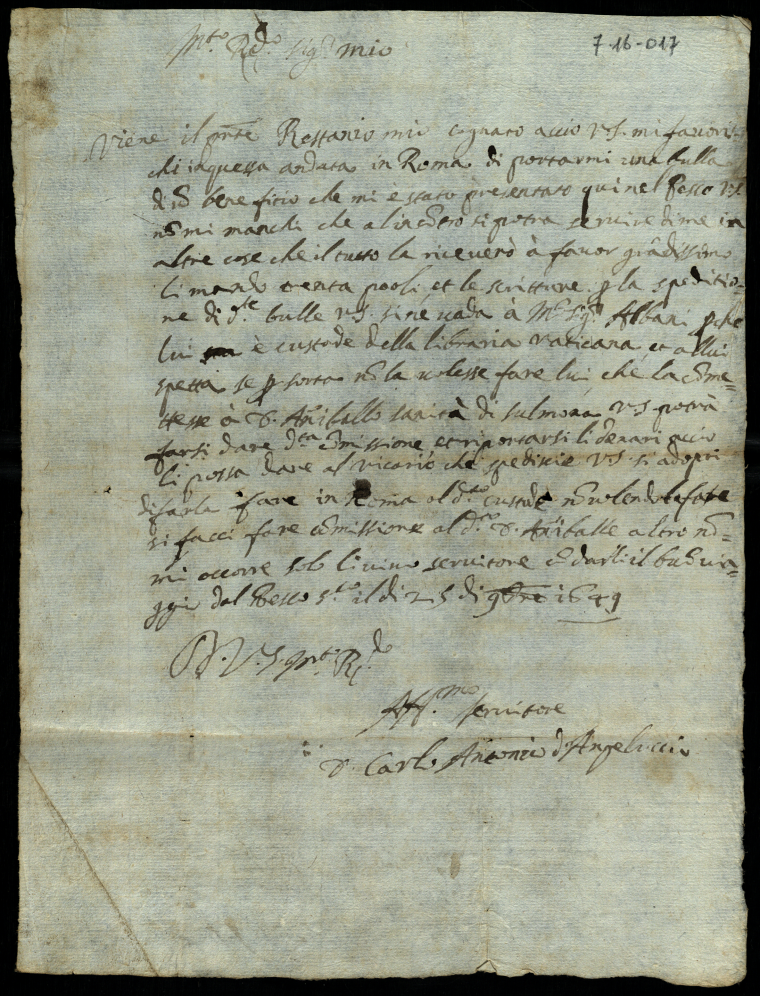 7-16-017
Mto Rdo sigr mio
Viene il pnte Rossanio mio cognato accio V.S. mi favoris
chi in questa andata in Roma di portarmi una bulla
di ũ beneficio che mi è stato presentato qui nel Pesco V.S.
nõ mi manchi che al incõtro si potra servire di me in
altre cose che il tutto la riceverò à favor grãdissimo
li mando trenta paoli, et le scritture p la speditio=
ne di dte bulle V.S. se ne vada à Mr Sigr Albani pche
lui è custode della libraria Vaticana et a llui
spetta se p sorta nõ la volesse fare lui, che la cõme=
ttesse à D. Aniballo sanità di Sulmona V.S. potrà
farsi dare dta cõmissione et riportarsi li denari accio
li possa dare al vicario che spedisce V.S. si adopri
di farla fare in Roma al dto custode nõ volendola fare
si facci fare cõmissione al dto D. Aniballe altro nõ=
mi occorre solo li vivo servitore cõ darli il buõ via=
ggio dal Pesco sto il di 25 di 9bre 1649
D. V. S. Mto Rda
Affmo servitore
D. Carlo Antonio d'Angeluccio